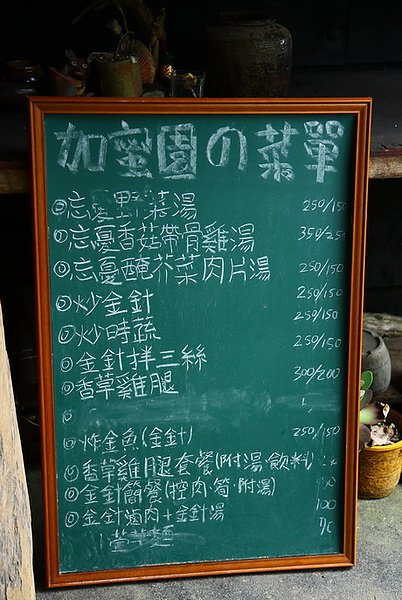 如蜜園の菜單
◎忘憂野菜湯 250/150
◎忘憂香菇帶骨雞湯 350/250
◎忘憂醃芥菜肉片湯 250/150
◎炒金針 250/150
◎炒時蔬 250/150
◎金針拌三絲 250/150
◎香草雞腿 300/200
◎
◎炸金魚(金針) 250/150
◎香草雞腿套餐(附湯飲料)
◎金針簡餐(控肉·筍·附湯)
◎金針滷肉+金針湯 100
萱草麵 70